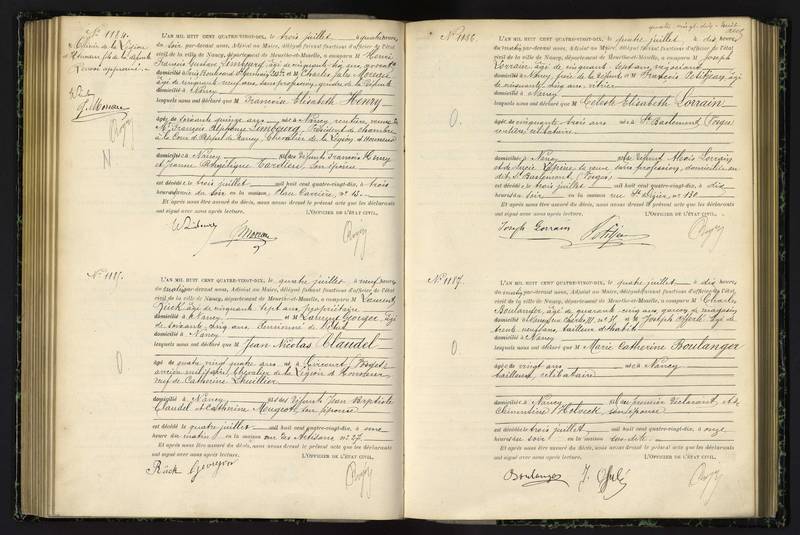 quatre vingt dix-huit
N° 1184.
L'AN MIL HUIT CENT QUATRE-VINGT-DIX, le trois juillet à quatre heures
du soir par-devant nous, Adjoint au Maire, délégué faisant fonctions d'officier de l'état
civil de la ville de Nancy, département de Meurthe-et-Moselle, a comparu M Henri
François Gustave Limbourg, âgé de cinquante
domicilié à
âgé de cinquante neuf ans, sans profession, gendre de la défunte
domicilié à Nancy
lesquels nous ont déclaré que M Francoise Elisabeth Henry
âgée de soixante quinze ans née à Nancy rentière, veuve de
M. François Alphonse Limbourg, Président de chambre
à la Cour d'Appel de Nancy, Chevalier de la Légion d'Honneur
domiciliée à Nancy fille des défunts Francois Henry
et Jeanne Angélique Tardieu, son épouse
est décédée le trois juillet mil huit cent quatre-vingt-dix, à trois
heures du soir en la maison Place Carrière, n° 13.
Et après nous être assuré du décès, nous avons dressé le présent acte que les déclarants
ont signé avec nous après lecture. L'OFFICIER DE L'ÉTAT CIVIL.
N° 1185.
L'AN MIL HUIT CENT QUATRE-VINGT-DIX, le quatre juillet à neuf heures
du matin par-devant nous, Adjoint au Maire, délégué faisant fonctions d'officier de l'état
civil de la ville de Nancy, département de Meurthe-et-Moselle, a comparu M Laurent
Rück âgé de cinquante sept ans, propriétaire
domicilié à Nancy et M Laurent Georgeon, âgé
de soixante cinq ans pensionné de l'état
domicilié à Nancy
lesquels nous ont déclaré que M Jean Nicolas Claudel
âgé de quatre vingt quatre ans né à Circourt, Vosges
ancien militaire, Chevalier de la Légion d'Honneur
veuf de Catherine Lhuillier
domicilié à Nancy fils des défunts Jean Baptiste
Claudel et Catherine Mougeot, son épouse
est décédé le quatre juillet mil huit cent quatre-vingt-dix, à une
heure du matin en la maison rue des Artisans n° 27.
Et après nous être assuré du décès, nous avons dressé le présent acte que les déclarants
ont signé avec nous après lecture. L'OFFICIER DE L'ÉTAT CIVIL.
Rück Georgeon
N° 1186.
L'AN MIL HUIT CENT QUATRE-VINGT-DIX, le quatre juillet à dix heures
du matin par-devant nous, Adjoint au Maire, délégué faisant fonctions d'officier de l'état
civil de la ville de Nancy, département de Meurthe-et-Moselle, a comparu M Joseph
Lorrain âgé de cinquante ans, négociant
domicilié à Nancy, frère de la défunte et M François Petitjean, âgé
de cinquante cinq ans, rentier
domicilié à Nancy
lesquels nous ont déclaré que M Celeste Elisabeth Lorrain
âgée de cinquante trois ans née à St Baslemont, Vosges
rentière, célibataire
domiciliée à Nancy fille de défunt Alexis Lorrain
et de Lucie sa veuve sans profession, domiciliée au
dit St Baslemont (Vosges)
est décédée le trois juillet mil huit cent quatre-vingt-dix, à dix
heures du soir en la maison rue St Dizier n° 130
Et après nous être assuré du décès, nous avons dressé le présent acte que les déclarants
ont signé avec nous après lecture. L'OFFICIER DE L'ÉTAT CIVIL.
Joseph Lorrain Petitjean
N° 1187.
L'AN MIL HUIT CENT QUATRE-VINGT-DIX, le quatre juillet à dix heures
du matin par-devant nous, Adjoint au Maire, délégué faisant fonctions d'officier de l'état
civil de la ville de Nancy, département de Meurthe-et-Moselle, a comparu M Charles
Boulanger, âgé de quarante cinq ans, garçon de magasin
domicilié à Nancy et M Joseph âgé de
trente neuf ans, tailleur d'habits
domicilié à Nancy
lesquels nous ont déclaré que M Marie Catherine Boulanger
âgée de vingt ans née à Nancy
tailleuse, célibataire
domiciliée à Nancy fille du premier déclarant, et de
Clementine Holveck, son épouse
est décédée le trois juillet mil huit cent quatre-vingt-dix, à onze
heures du soir en la maison sus-dite
Et après nous être assuré du décès, nous avons dressé le présent acte que les déclarants
ont signé avec nous après lecture. L'OFFICIER DE L'ÉTAT CIVIL.
Boulanger